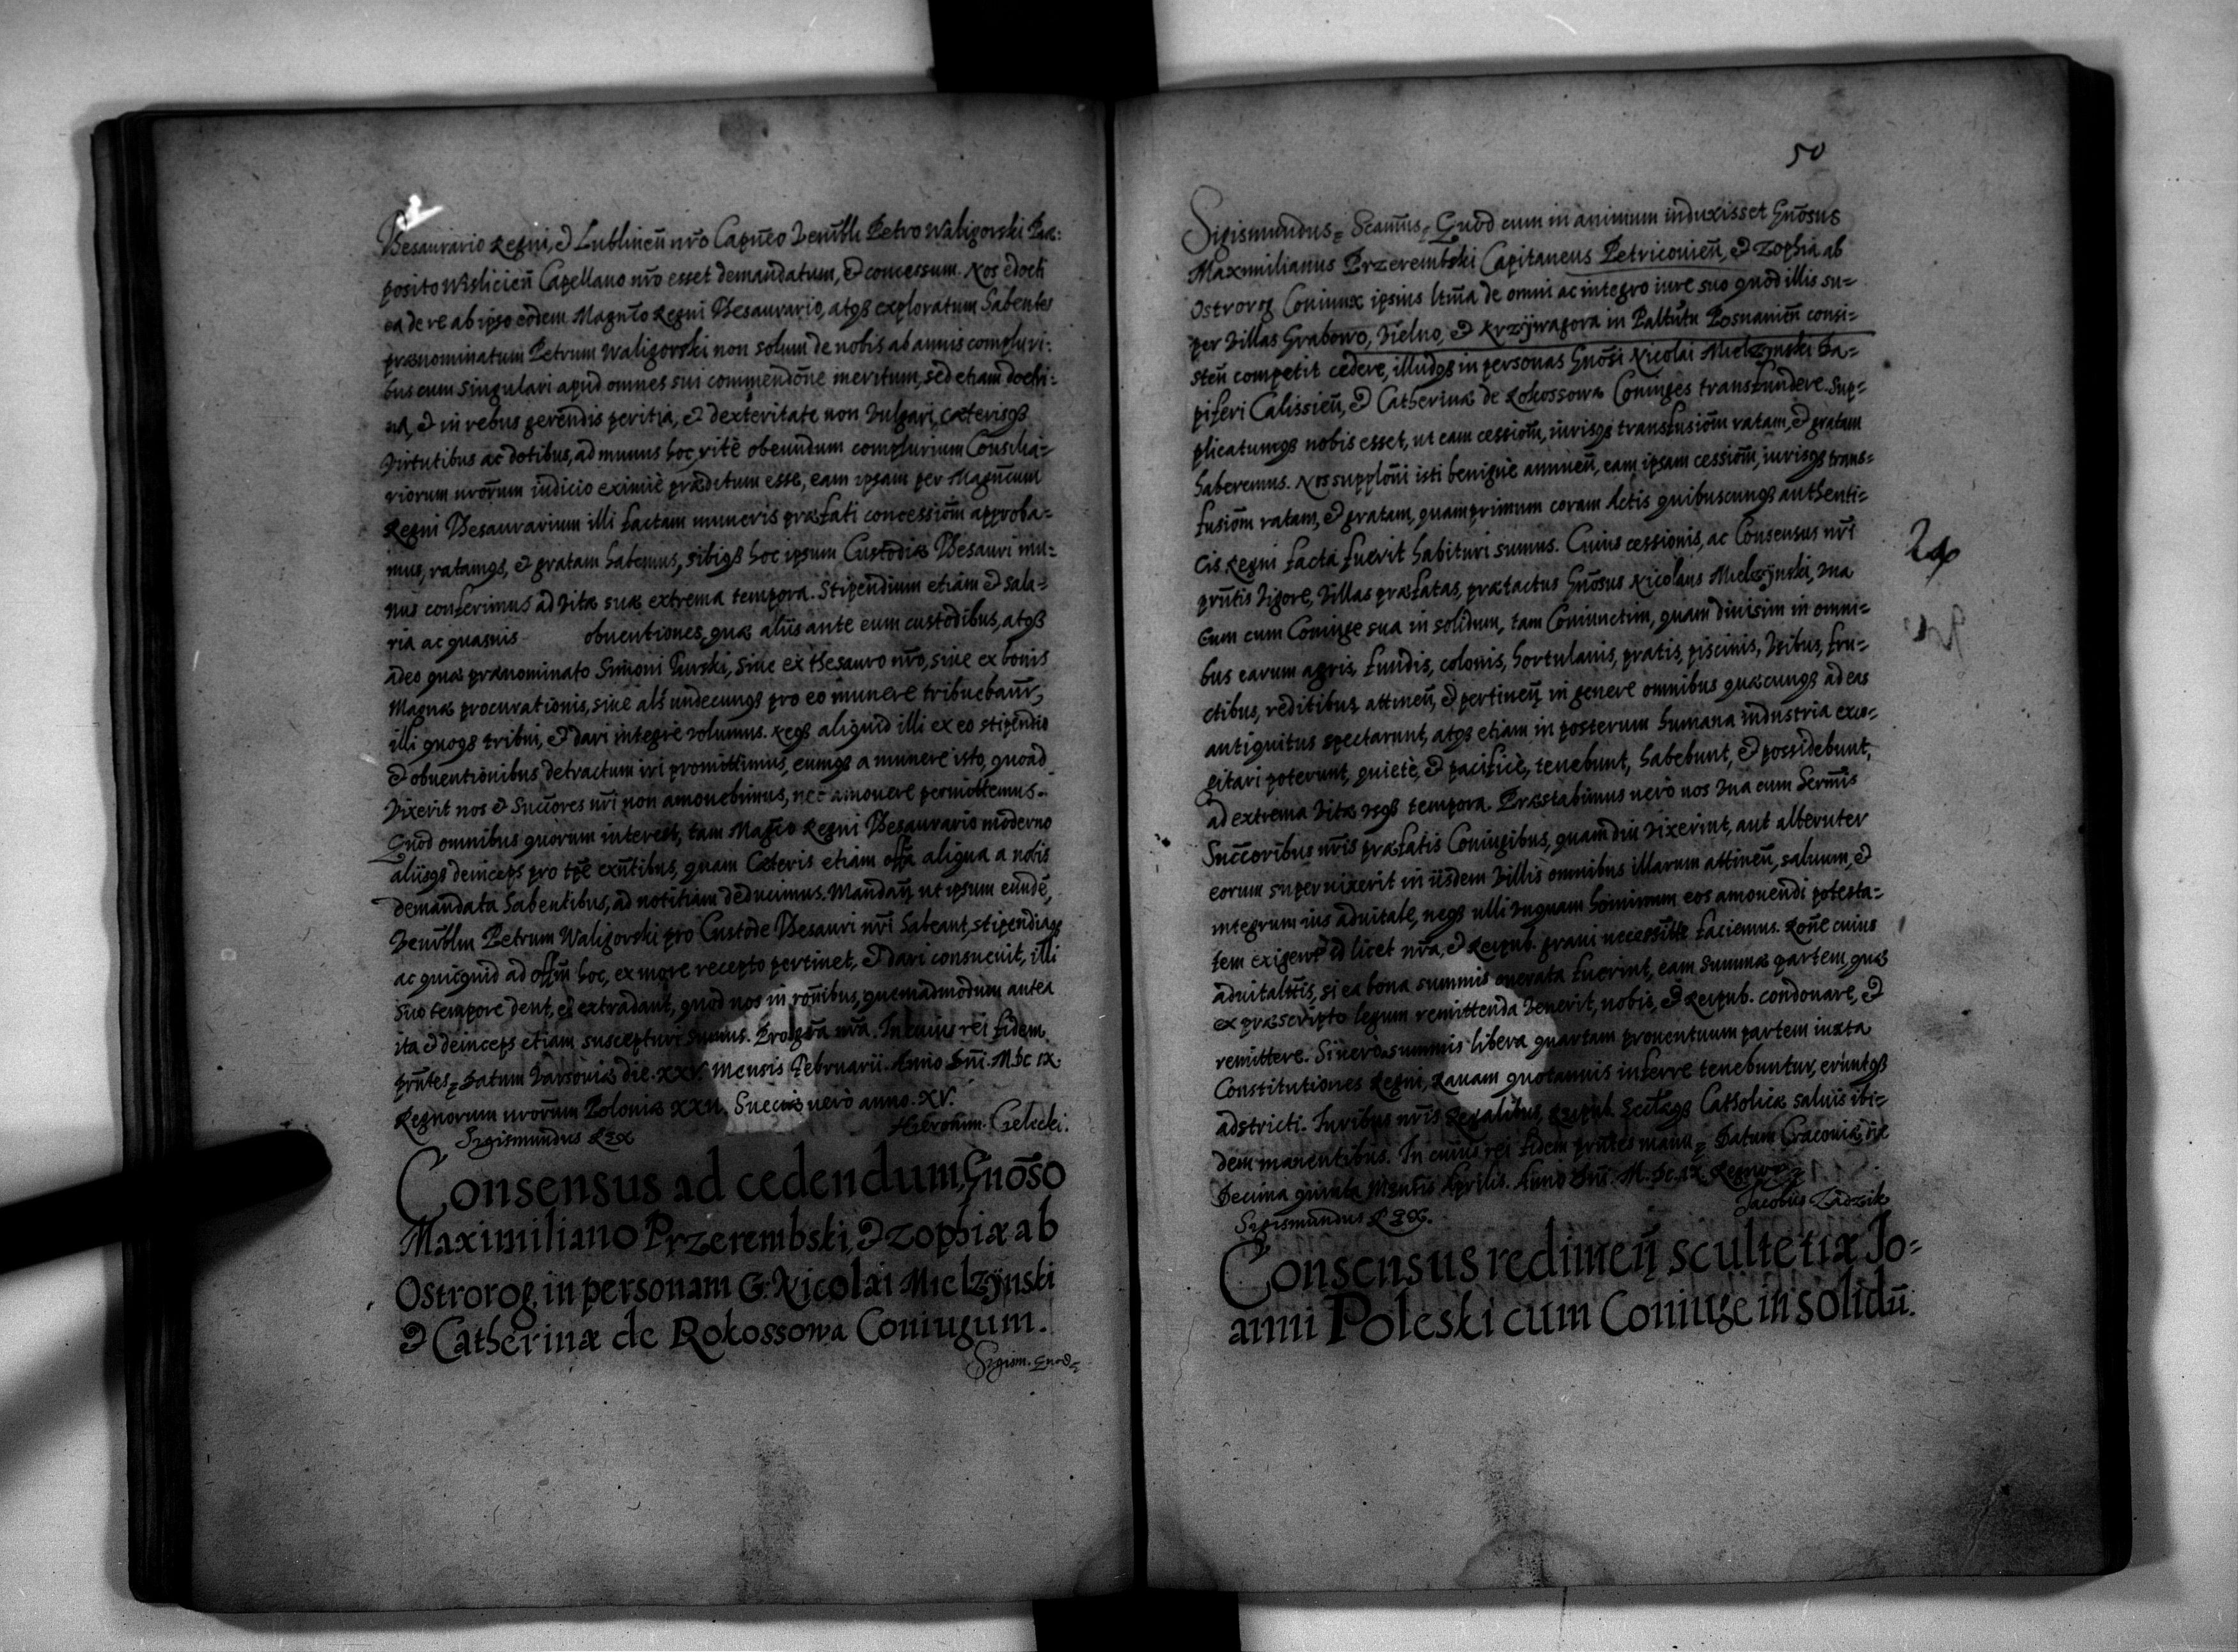 Thesaurario Regni, & Lublineñ nr̃o Capñeo Venr̃bli Petro Waligorski Præ:
posito Wislicieñ Capellano nr̃o esset demandatum, & concessum. Nos edocti
ea de re ab ipso eodem Magnĩco Regni Thesaurario, atq3 exploratum habentes
prænominatum Petrum Waligorski non solum de nobis ab annis compluri:
bus cum singulari apud omnes sui commendõne meritum, sed etiam doctri:
na, & in rebus gerendis peritia, & dexteritate non vulgari, cæterisq3
virtutibus ac dotibus, ad munus hoc ritè obeundum complurium Consilia=
riorum nrõrum iudicio eximiè præditum esse, eam ipsam per Magñcum
Regni Thesaurarium illi factam muneris præfati concessiõm approba=
mus, ratamq3, & gratam habemus, sibiq3 hoc ipsum Custodiæ Thesauri mu=
nus conferimus ad vitæ suæ extrema tempora. Stipendium etiam & sala=
ria ac quasuis obuentiones, quæ aliis ante eum custodibus, atq3
adeo quæ prænominato Simoni Turski, siue ex thesauro nr̃o, siue ex bonis
Magnæ procurationis, siue als undecunq3 pro eo munere tribuebatr̃,
illi quoq3 tribui, & dari integrè volumus. Neq3 aliquid illi ex eo stipendio
& obuentionibus detractum iri promittimus, eumq3 a munere isto, quoad
vixerit nos & Succores nr̃i non amouebimus, nec amouere permittemus.
Quod omnibus quorum interest, tam Magco Regni Thesaurario moderno
aliisq3 deinceps pro tp̃e exñtibus, quam Cæteris etiam offa aliqua a nobis
demandata habentibus, ad notitiam deducimus. Mandan̄ ut ipsum eunde,
Venr̃blm Petrum Waligorski pro Custode Thesauri nr̃i habeant, stipendiaq3
ac quicquid ad offm̃ hoc, ex more recepto pertinet, & dari consueuit, illi
suo tempore dent, & extradant, quod nos in rõnibus, quemadmodum antea
ita & deinceps etiam suscepturi sumus. Pro gr̃a nr̃a. In cuius rei fidem
prñtes = Datum Varsouiæ die. XXV. mensis Februarii. Anno Dñi. M. Dc IX.
Regnorum nrõrum Poloniæ XXII. Sueciæ uerò anno. XV.
Sigismundus Rex
Hieronim. Cielecki.
Consensus ad cedendum, Gnõso
Maximiliano Przerembski, & Zophiæ ab
Ostrorog, in personam G. Nicolai Mielzÿnski
& Catherinæ de Rokossowa Coniugum.
Sigism. Quod=
50
Sigismundus = Seam̃us = Quod cum in animum induxisset Gnõsus
Maximilianus Przerembski Capitaneus Petricouieñ, & Zophia ab
Ostrorog Coniunx ipsius ltm̃a de omni ac integro iure suo quod illis su=
per Villas Grabowo, Vielno, & Krzÿwagora in Paltutu Posnanieñ consi=
steñ competit cedere, illudq3 in personas Gnõsi Nicolai Mielzynski Da=
piferi Calissieñ, & Catherinæ de Rokossowa Coniuges transfundere. Sup=
plicatumq3 nobis esset, ut eam cessiom̃, iurisq3 transfusiõm ratam, & gratam
haberemus. Nos supplõni isti benignè annueñ, eam ipsam cessiom̃, iurisq3 trans=
fusiõm ratam, & gratam, quamprimum coram Actis quibuscunq3 authenti=
cis Regni facta fuerit habituri sumus. Cuius cessionis, ac Consensus nr̃i
prñtis vigore, Villas præfatas, prætactus Gnõsus Nicolaus Mielzÿnski, vna
Cum cum Coniuge sua in solidum, tam Coniunctim, quam diuisim in omni=
bus earum agris, fundis, colonis, hortulanis, pratis, piscinis, Vsibus, fru=
ctibus, reditibus, attineñ, & pertineñ in genere omnibus quæcunq3 ad eas
antiquitus spectarunt, atq3 etiam in posterum humana industria exco=
gitari poterunt, quietè, & pacificè, tenebunt, habebunt, & possidebunt,
ad extrema vitæ vsq3 tempora. Præstabimus uerò nos vna cum Sermis
Succoribus nr̃is præfatis Coniugibus, quamdiu vixerint, aut alteruter
eorum superuixerit in iisdem Villis omnibus illarum attineñ, saluum, &
integrum ius aduitale, neq3 ulli vnquam hominum eos amouendi potesta=
tem id licet nr̃a, & Reipub. graui necessitte faciemus. Rõne cuius
aduitalttis, si ea bona summis onerata fuerint, eam summæ partem, quæ
ex præscripto legum remittenda venerit, nobis, & Reipub. condonare, &
remittere. Si uerò a summis libera quartam prouentuum partem iuxta
Constitutiones Regni, Rauam quotannis inferre tenebuntur, eruntq3
adstricti. Iuribus nr̃is Regalibus, Reipub. Ecclæq3 Catholicæ saluis ibi=
dem manentibus. In cuius rei fidem prñtes manu = Datum Cracouiæ die
Decima quinta Mensis Aprilis. Anno Dñi. M. Dc. IX Regnor =
Sigismundus Rex.
Jacobus Zadzik
Consensus redimen̄ scultetiæ Jo=
anni Poleski cum Coniuge in solidū.